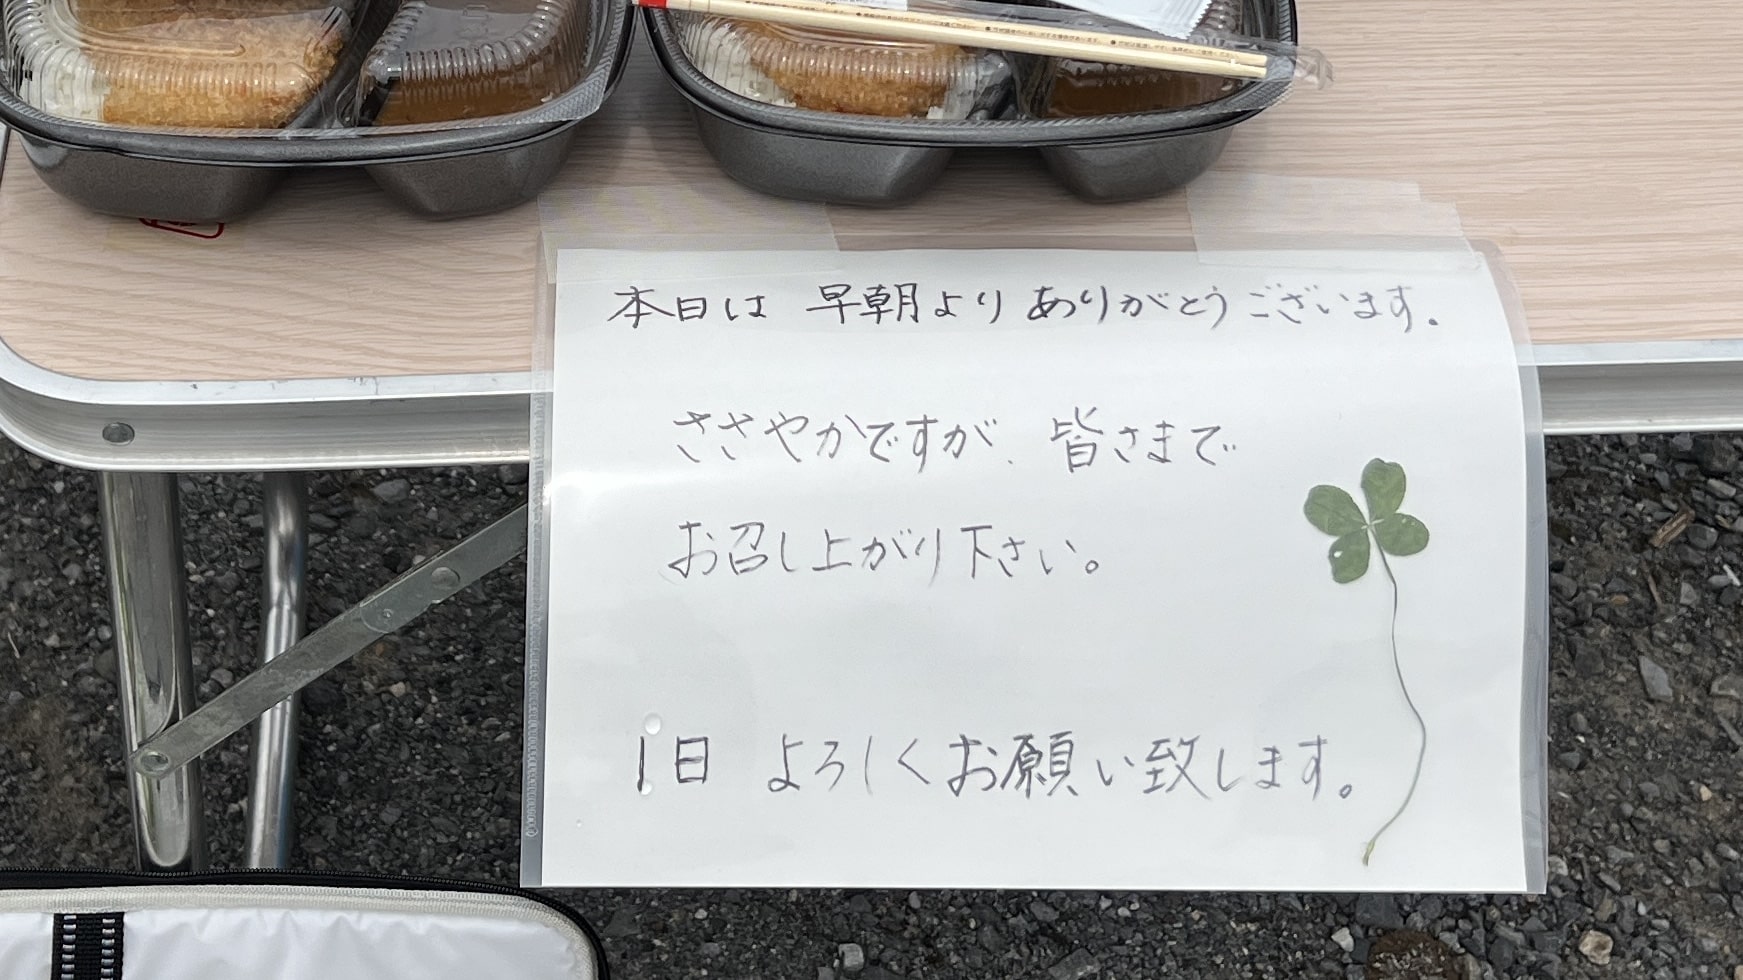 本日は 早朝より ありがとうございます.
ささやかですが、皆さまで
お召し上がり下さい。
1日 よろしくお願い致します。